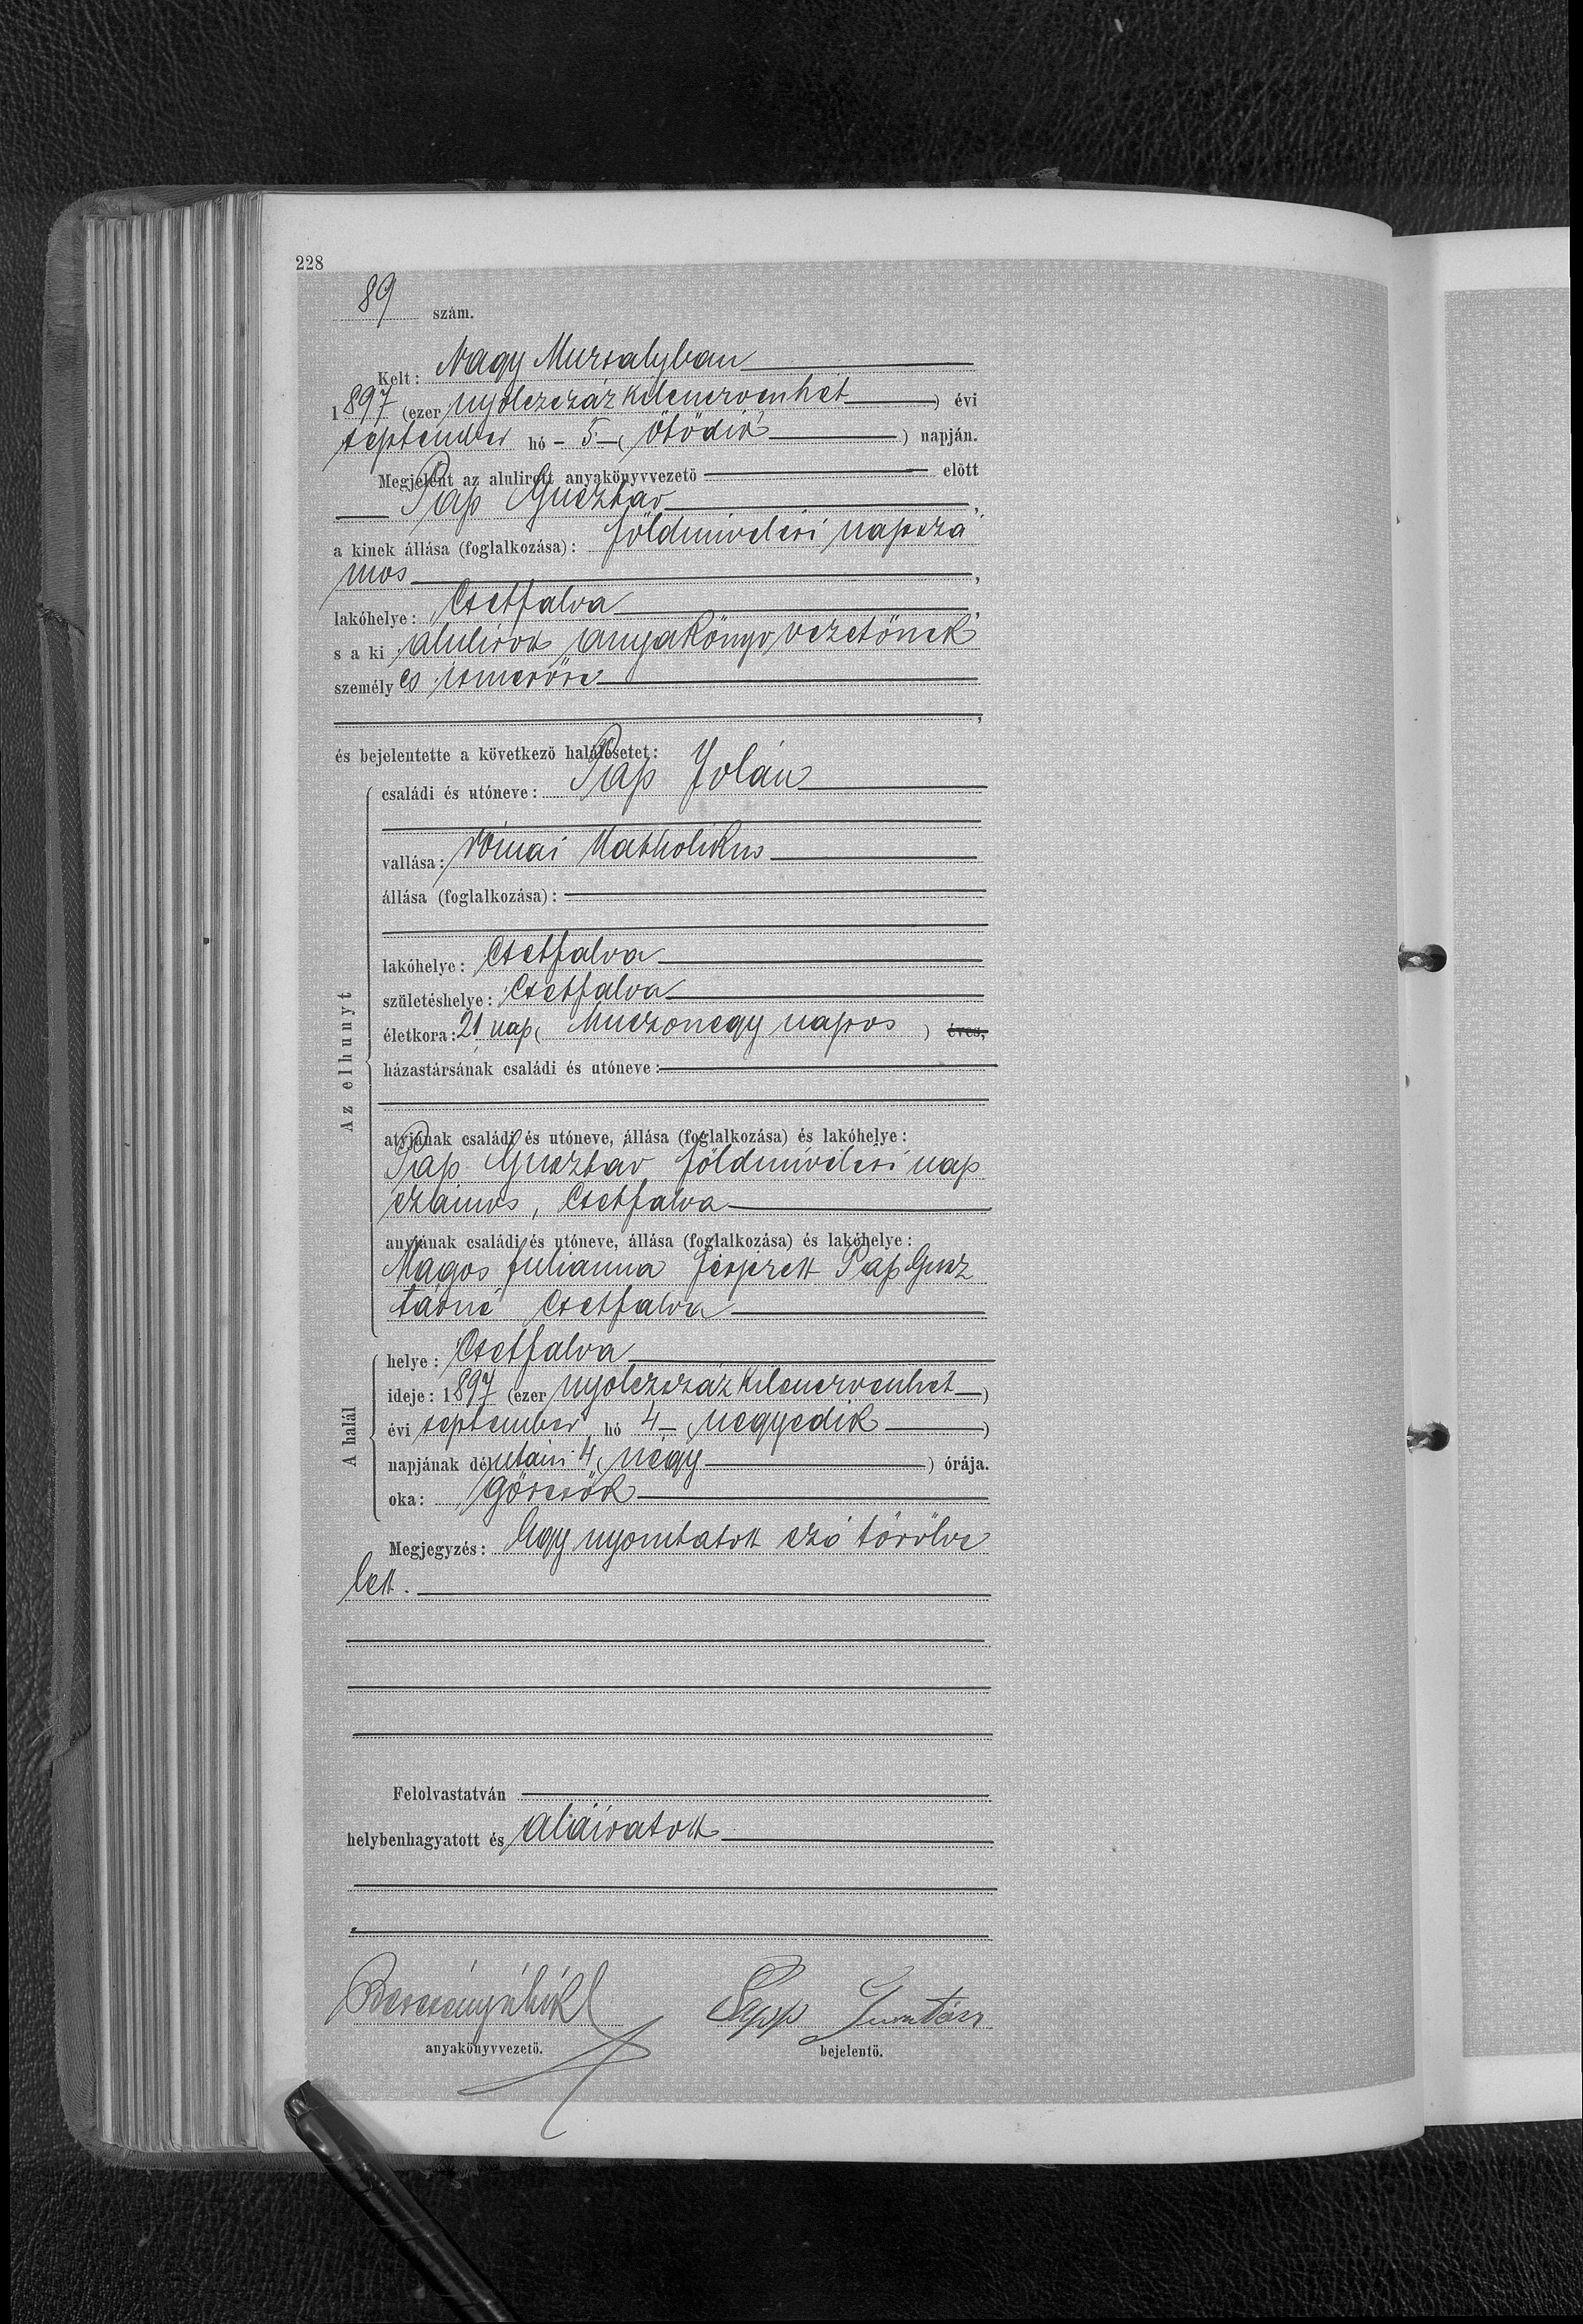 228
89 szám.
Kelt: Nagy Muzsalyban
1897 (ezer nyolczszáz kilenczvenhét) évi
september hó 5 (ötödik) napján.
Megjelent az alulirott anyakönyvvezető előtt
Pap Gusztav,
a kinek állása (foglalkozása): földmivelési napszá
mos,
lakóhelye: Csetfalva,
s a ki alulirott anyakönyvvezetőnek
személyes ismerőse
,
és bejelentette a következő halálesetet:
Az elhunyt
családi és utóneve: Pap Jolán
vallása: római katholikus
állása (foglalkozása):
lakóhelye: Csetfalva
születéshelye: Csetfalva
életkora: 21 nap (huszonegy napos) éves,
házastársának családi és utóneve:
atyjának családi és utóneve, állása (foglalkozása) és lakóhelye:
Pap Gusztav földmivelési nap
számos, Csetfalva
anyjának családi és utóneve, állása (foglalkozása) és lakóhelye:
Magos Julianna férjezett Pap Gusz
távné Csetfalva
A halál
helye: Csetfalva
ideje: 1897 (ezer nyolczszáz kilenczvenhét)
évi september hó 4 (negyedik)
napjának délutáni 4 (négy) órája.
oka: görcsök
Megjegyzés: Egy nyomtatott szó törölve
lett.
Felolvastatván
helybenhagyatott és aláiratott
Papp Gusztáv
anyakönyvvezető. bejelentő.